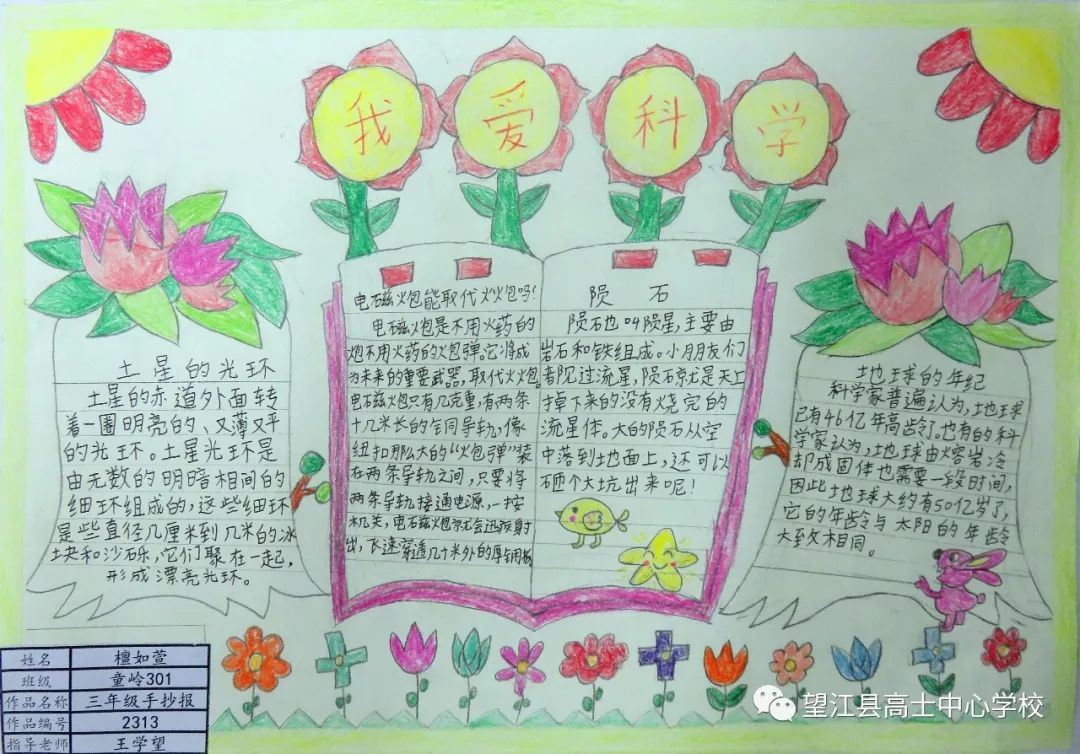 我爱科学
土星的光环
土星的赤道外面转
着一圈明亮的、又薄又平
的光环。土星光环是
由无数的明暗相间的
细环组成的,这些细环
是些直径几厘米到几米的冰
块和沙砾,它们聚在一起,
形成漂亮光环。
电磁炮能取代火炮吗!
电磁炮是不用火药的
炮不用火药的炮弹。它将成
为未来的重要武器,取代火炮。
电磁炮只有几克重,有两条
十几米长的合同导轨,像
纽扣那么大的“炮弹”装
在两条导轨之间,只要将
两条导轨接通电源,一按
机关,电磁炮就会迅疾射
出,飞速穿透几十米外的厚钢板
陨 石
陨石也叫陨星,主要由
岩石和铁组成。小朋友们
都见过流星,陨石就是天上
掉下来的没有烧完的
流星体。大的陨石从空
中落到地面上,还可以
砸个大坑出来呢!
地球的年纪
科学家普遍认为,地球
已有46亿年高龄了。也有的科
学家认为,地球由熔岩冷
却成固体也需要一段时间,
因此地球大约有50亿岁了,
它的年龄与太阳的年龄
大致相同。
姓名 檀如萱
班级 童岭301
作品名称 三年级手抄报
作品编号 2313
指导老师 王学望
望江县高士中心学校